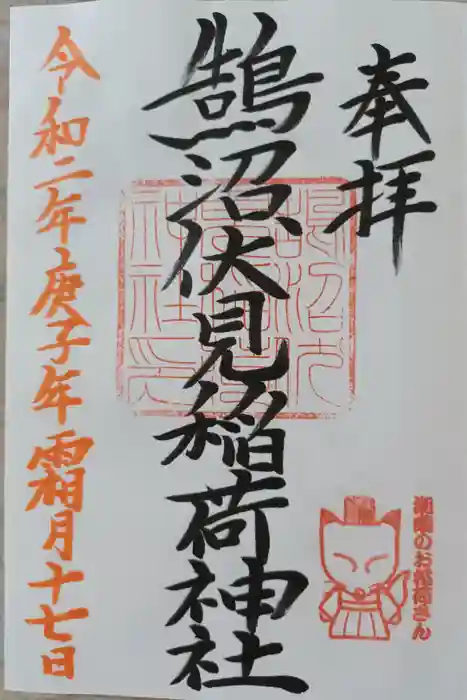 奉拝
鵠沼伏見稲荷神社
令和二年庚子年霜月十七日
湘南のお稲荷さん